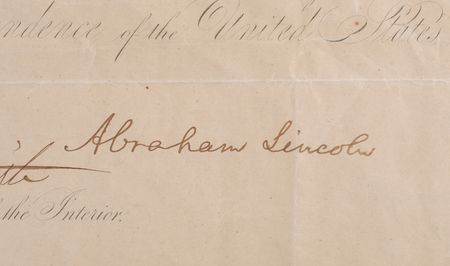 ndence of the United States
Abraham Lincoln
the Interior.